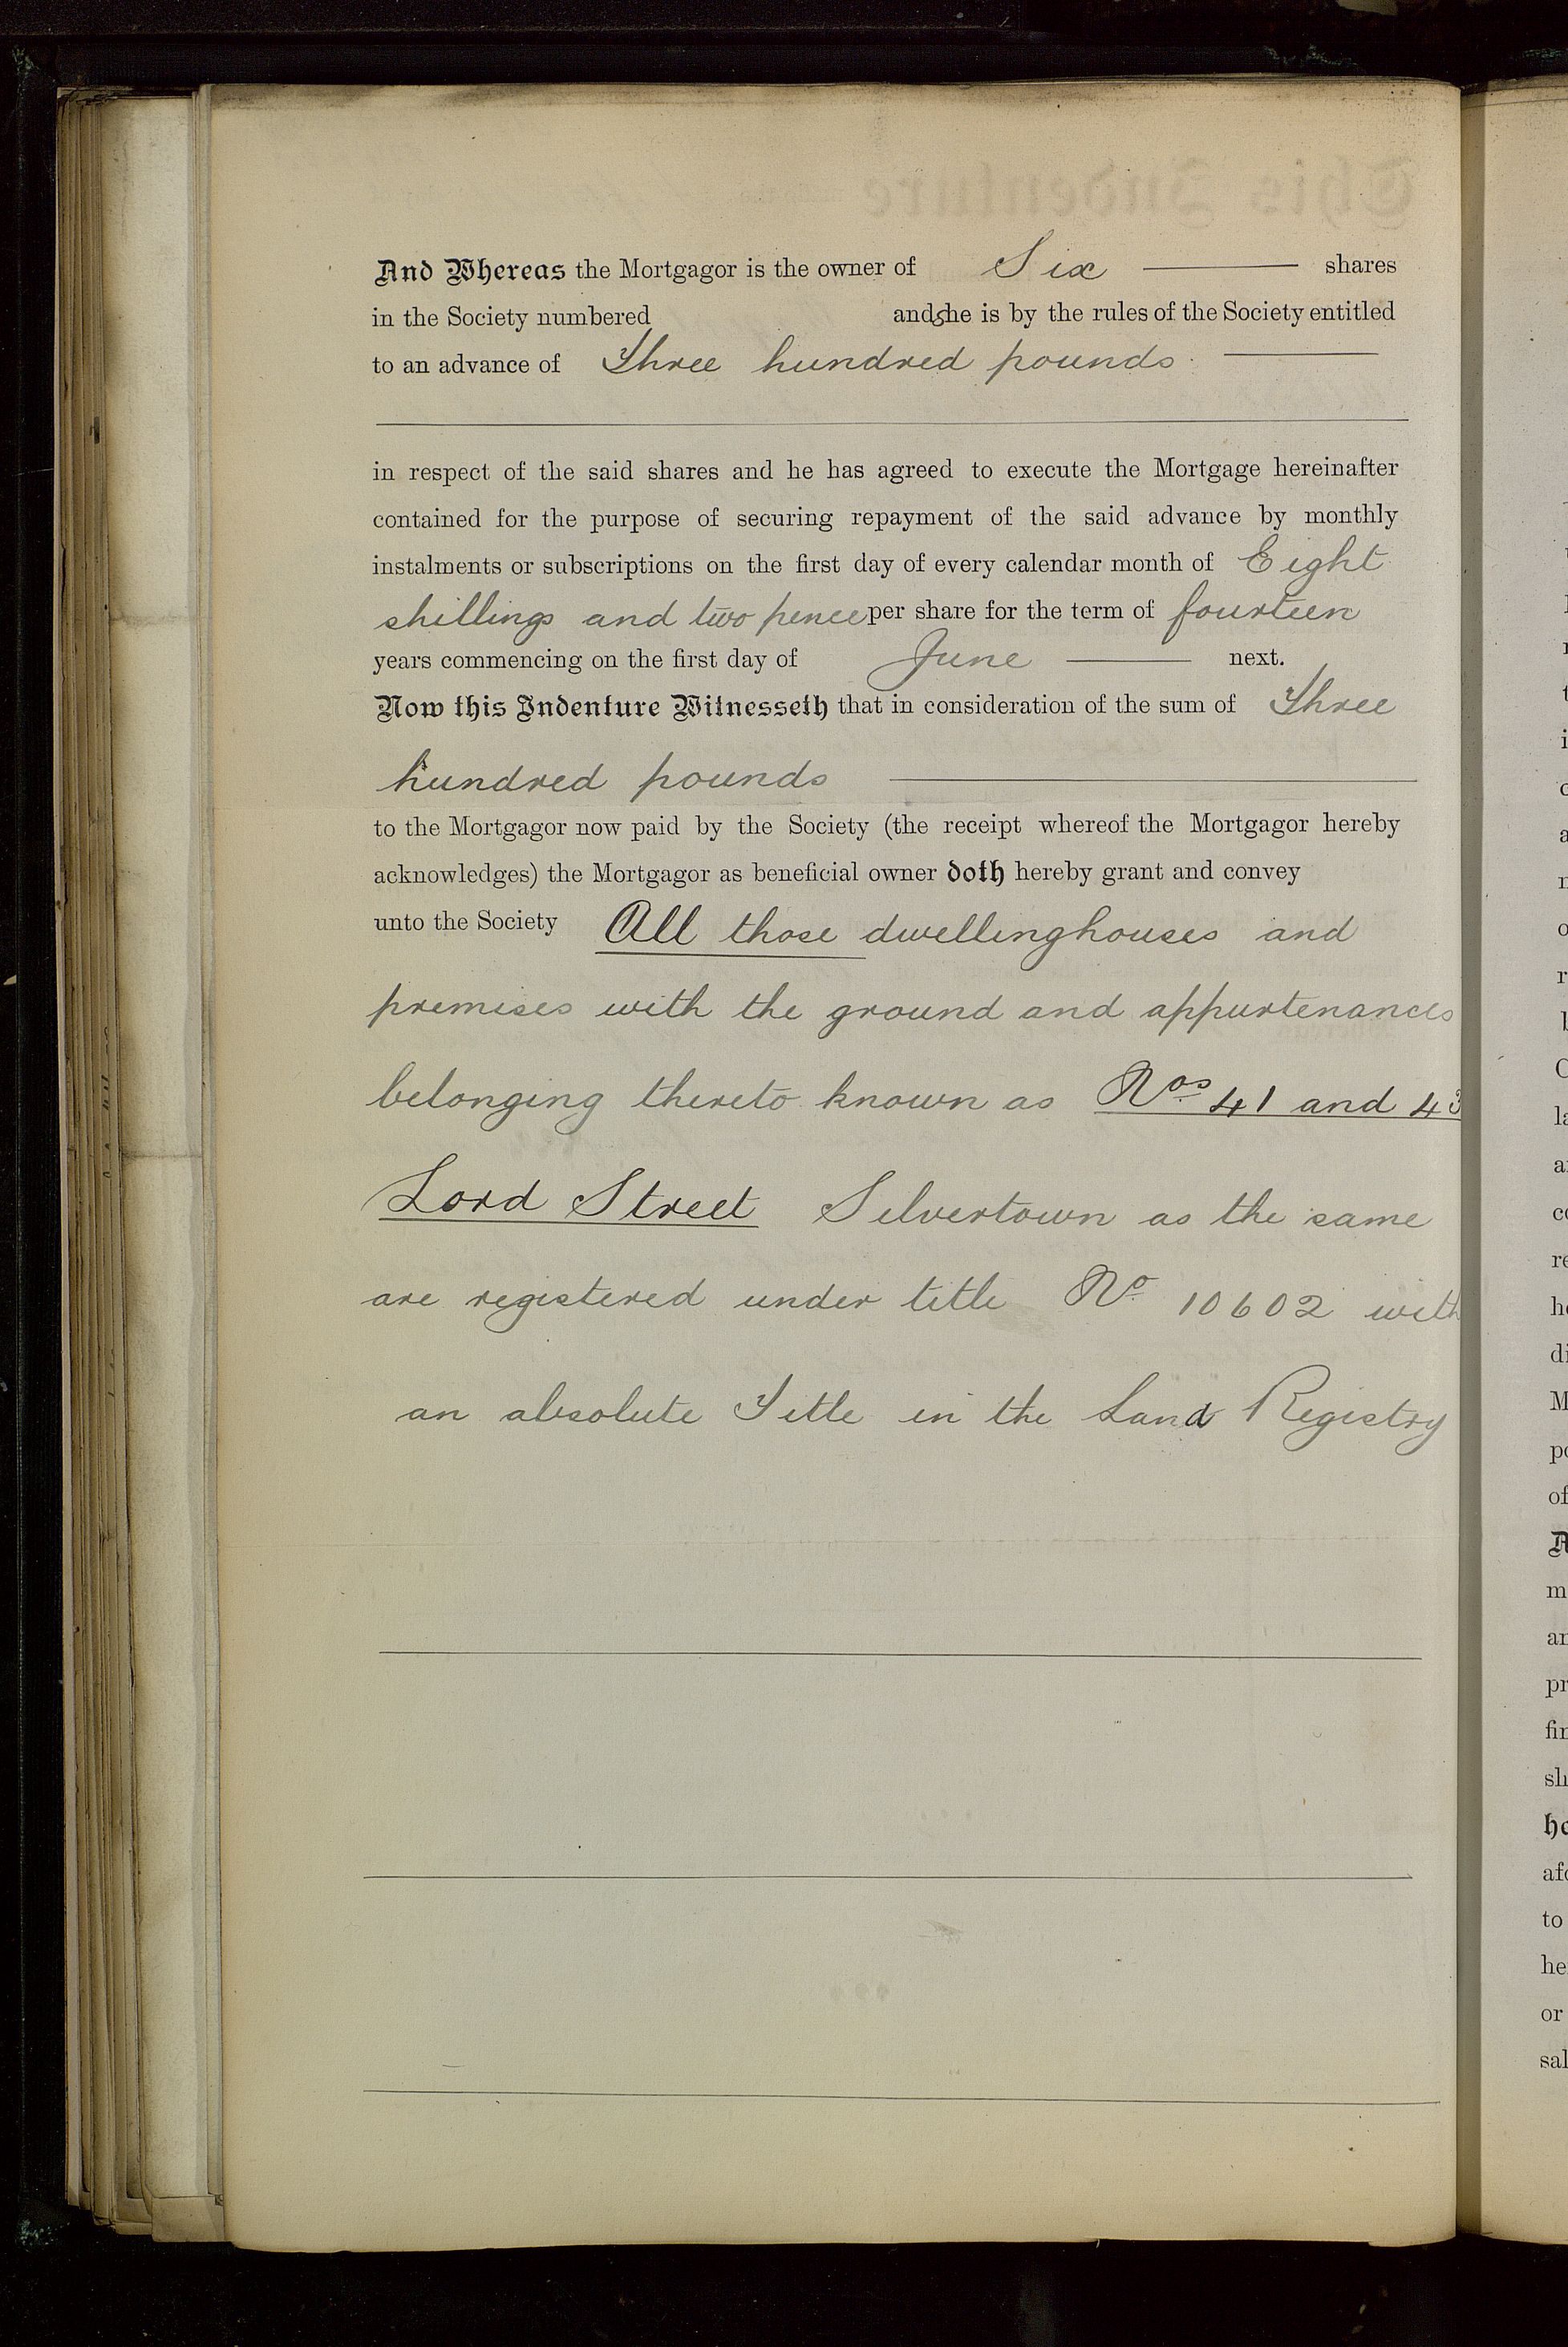 And Whereas the Mortgagor is the owner of Six shares
in the Society numbered and she is by the rules of the Society entitled
to an advance of Three hundred pounds
in respect of the said shares and he has agreed to execute the Mortgage hereinafter
contained for the purpose of securing repayment of the said advance by monthly
instalments or subscriptions on the first day of every calendar month of Eight
shillings and two pence per share for the term of fourteen
years commencing on the first day of June next.
Now this Indenture Witnesseth that in consideration of the sum of Three
hundred pounds
to the Mortgagor now paid by the Society (the receipt whereof the Mortgagor hereby
acknowledges) the Mortgagor as beneficial owner doth hereby grant and convey
unto the Society All those dwellinghouses and
premises with the ground and appurtenances
belonging thereto known as Nos 41 and 43
Lord Street Silvertown as the same
are registered under title No 10602 with
an absolute Title in the Land Registry